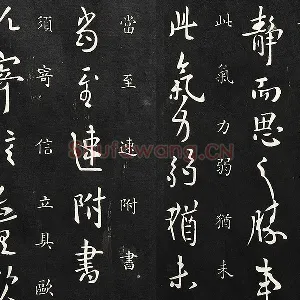 靜而思之勝
此氣力弱猶未
此氣力弱猶未
當至速附書
當至速附書
須寄信立具歐
寄信立具歐
shufawang.CN